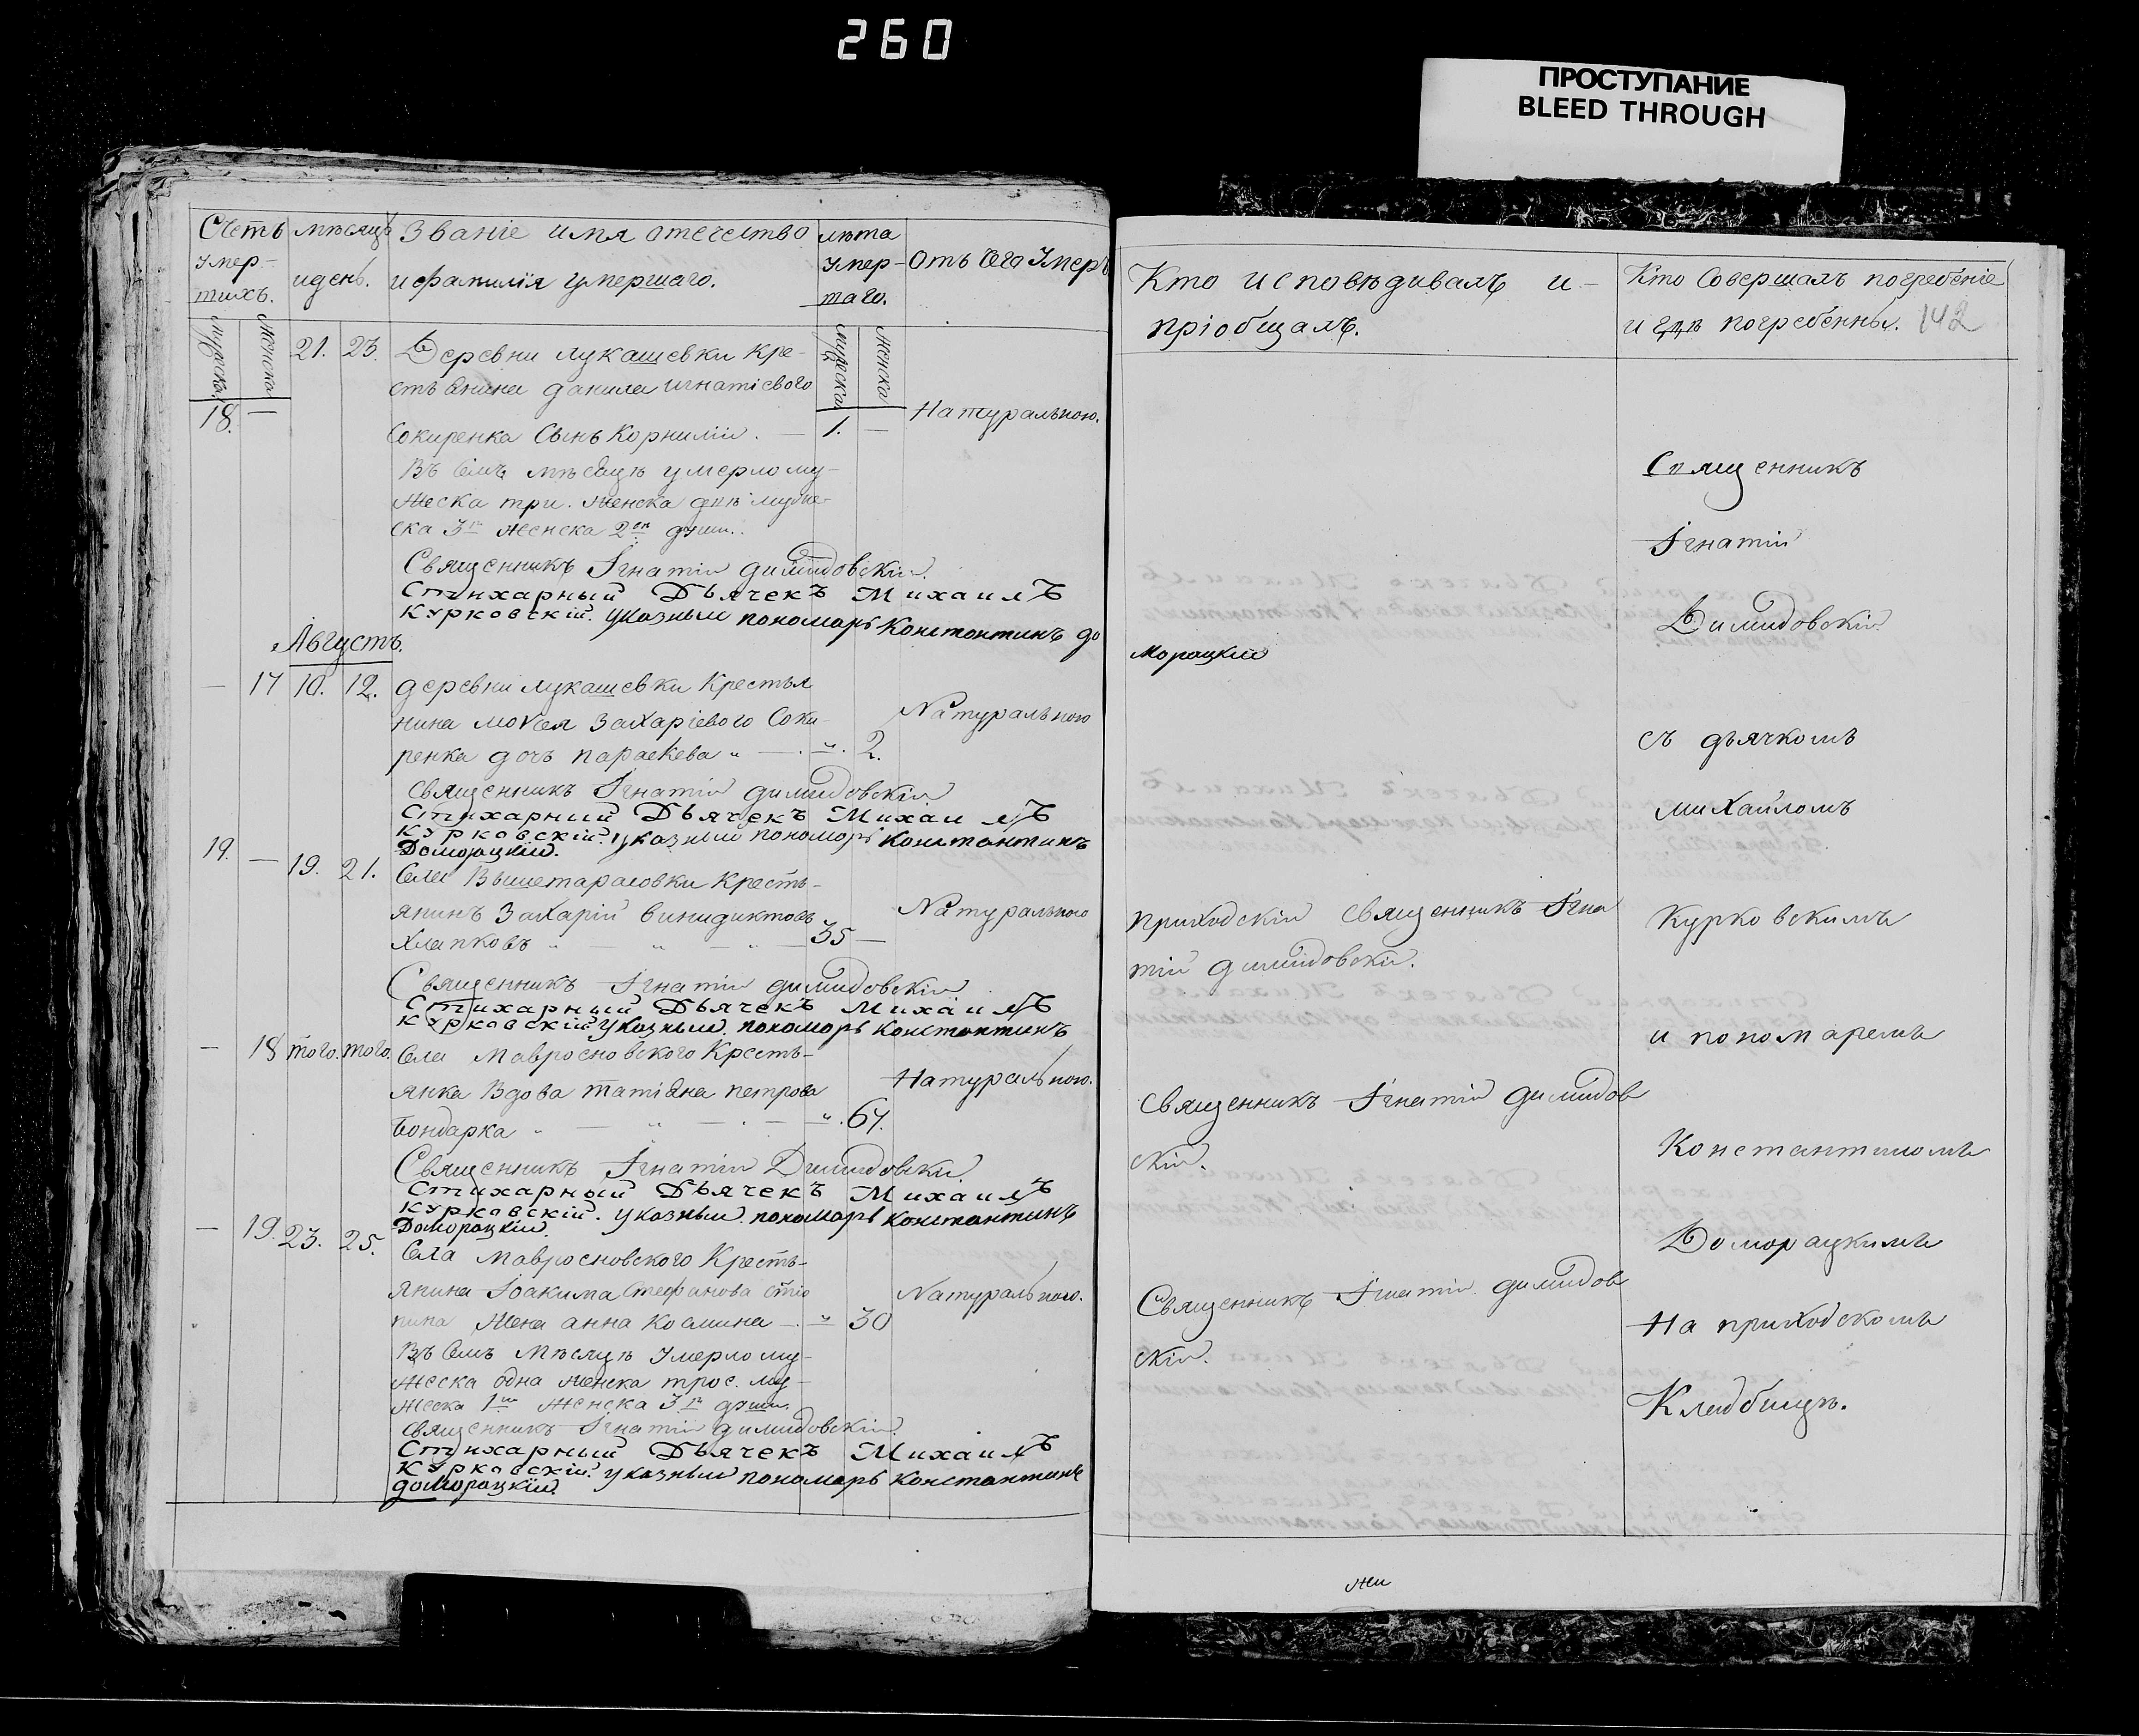 260
ПРОСТУПАНИЕ
BLEED THROUGH
Счетъ
Умер-
тихъ.
мѣсяцъ
и день.
Званіе имя отечество
и фамилія умершаго.
лѣта
Умер-
шаго.
Отъ чего Умеръ
мужска
женска
21. 23.
Деревни лукашевки кре-
стьянина данила игнатіевого
18. —
Сокиренка Сынъ Корнилій. — 1. —
Натуральною.
Въ семъ мѣсяцѣ умерло му-
жеска три. женска двѣ муже-
ска 3 женска 2 души.
Священникъ Ігнатій димидовскій.
Стихарный Дьячекъ Михаилъ
Курковскій. указный пономарь Константинъ до
Августъ.
— 17 10. 12.
деревни лукашевки Крестья
нина мокея Захаріевого Соки-
ренка дочь параскева „ — „ 2.
Натурального
священникъ Ігнатій димидовскій
Стихарный Дьячекъ Михаилъ
Курковскій. указный пономарь Константинъ
Доморацкій.
19. — 19. 21.
Села Вышетарасовки Кресть-
янинъ Захарій винидиктовъ
Хлапковъ „ — „ — „ — 35 —
Натурального
Священникъ Ігнатій димидовскій
Стихарный Дьячекъ Михаилъ
Курковскій указный. пономарь Константинъ
— 18 того. того.
Села Мавросновского Кресть-
янка Вдова татіяна петрова
Бондарка „ — „ — . — „ 67.
Натуральною.
Священникъ Ігнатій Димидовскій.
Стихарный Дьячекъ Михаилъ
Курковскій. указный. пономарь Константинъ
Доморацкій.
— 19. 23. 25.
Села Мавросновского Кресть-
янина Іоакима Стефанова
Жена анна Космина — . „ 30
Натуральною.
Въ семъ Мѣсяцѣ Умерло му-
жеска одна женска трое. му-
жеска 1 женска 3 души.
священникъ Ігнатій димидовскій.
Стихарный Дьячекъ Михаилъ
Курковскій. указный пономарь Константинъ
доморацкій.
Кто исповѣдивалъ и —
пріобщалъ.
морацкій
приходскій священникъ Ігна
тій димидовскій.
священникъ Ігнатій димидов
скій.
Священникъ Ігнатій димидов
скій.
жи
Кто Совершалъ погребеніе
и гдѣ погребенны. 142
Священникъ
Ігнатій
Димидовскій
съ дьячкомъ
михайломъ
Курковскимъ
и пономаремъ
Константиномъ
Доморацкимъ
На приходскомъ
Кладбищѣ.